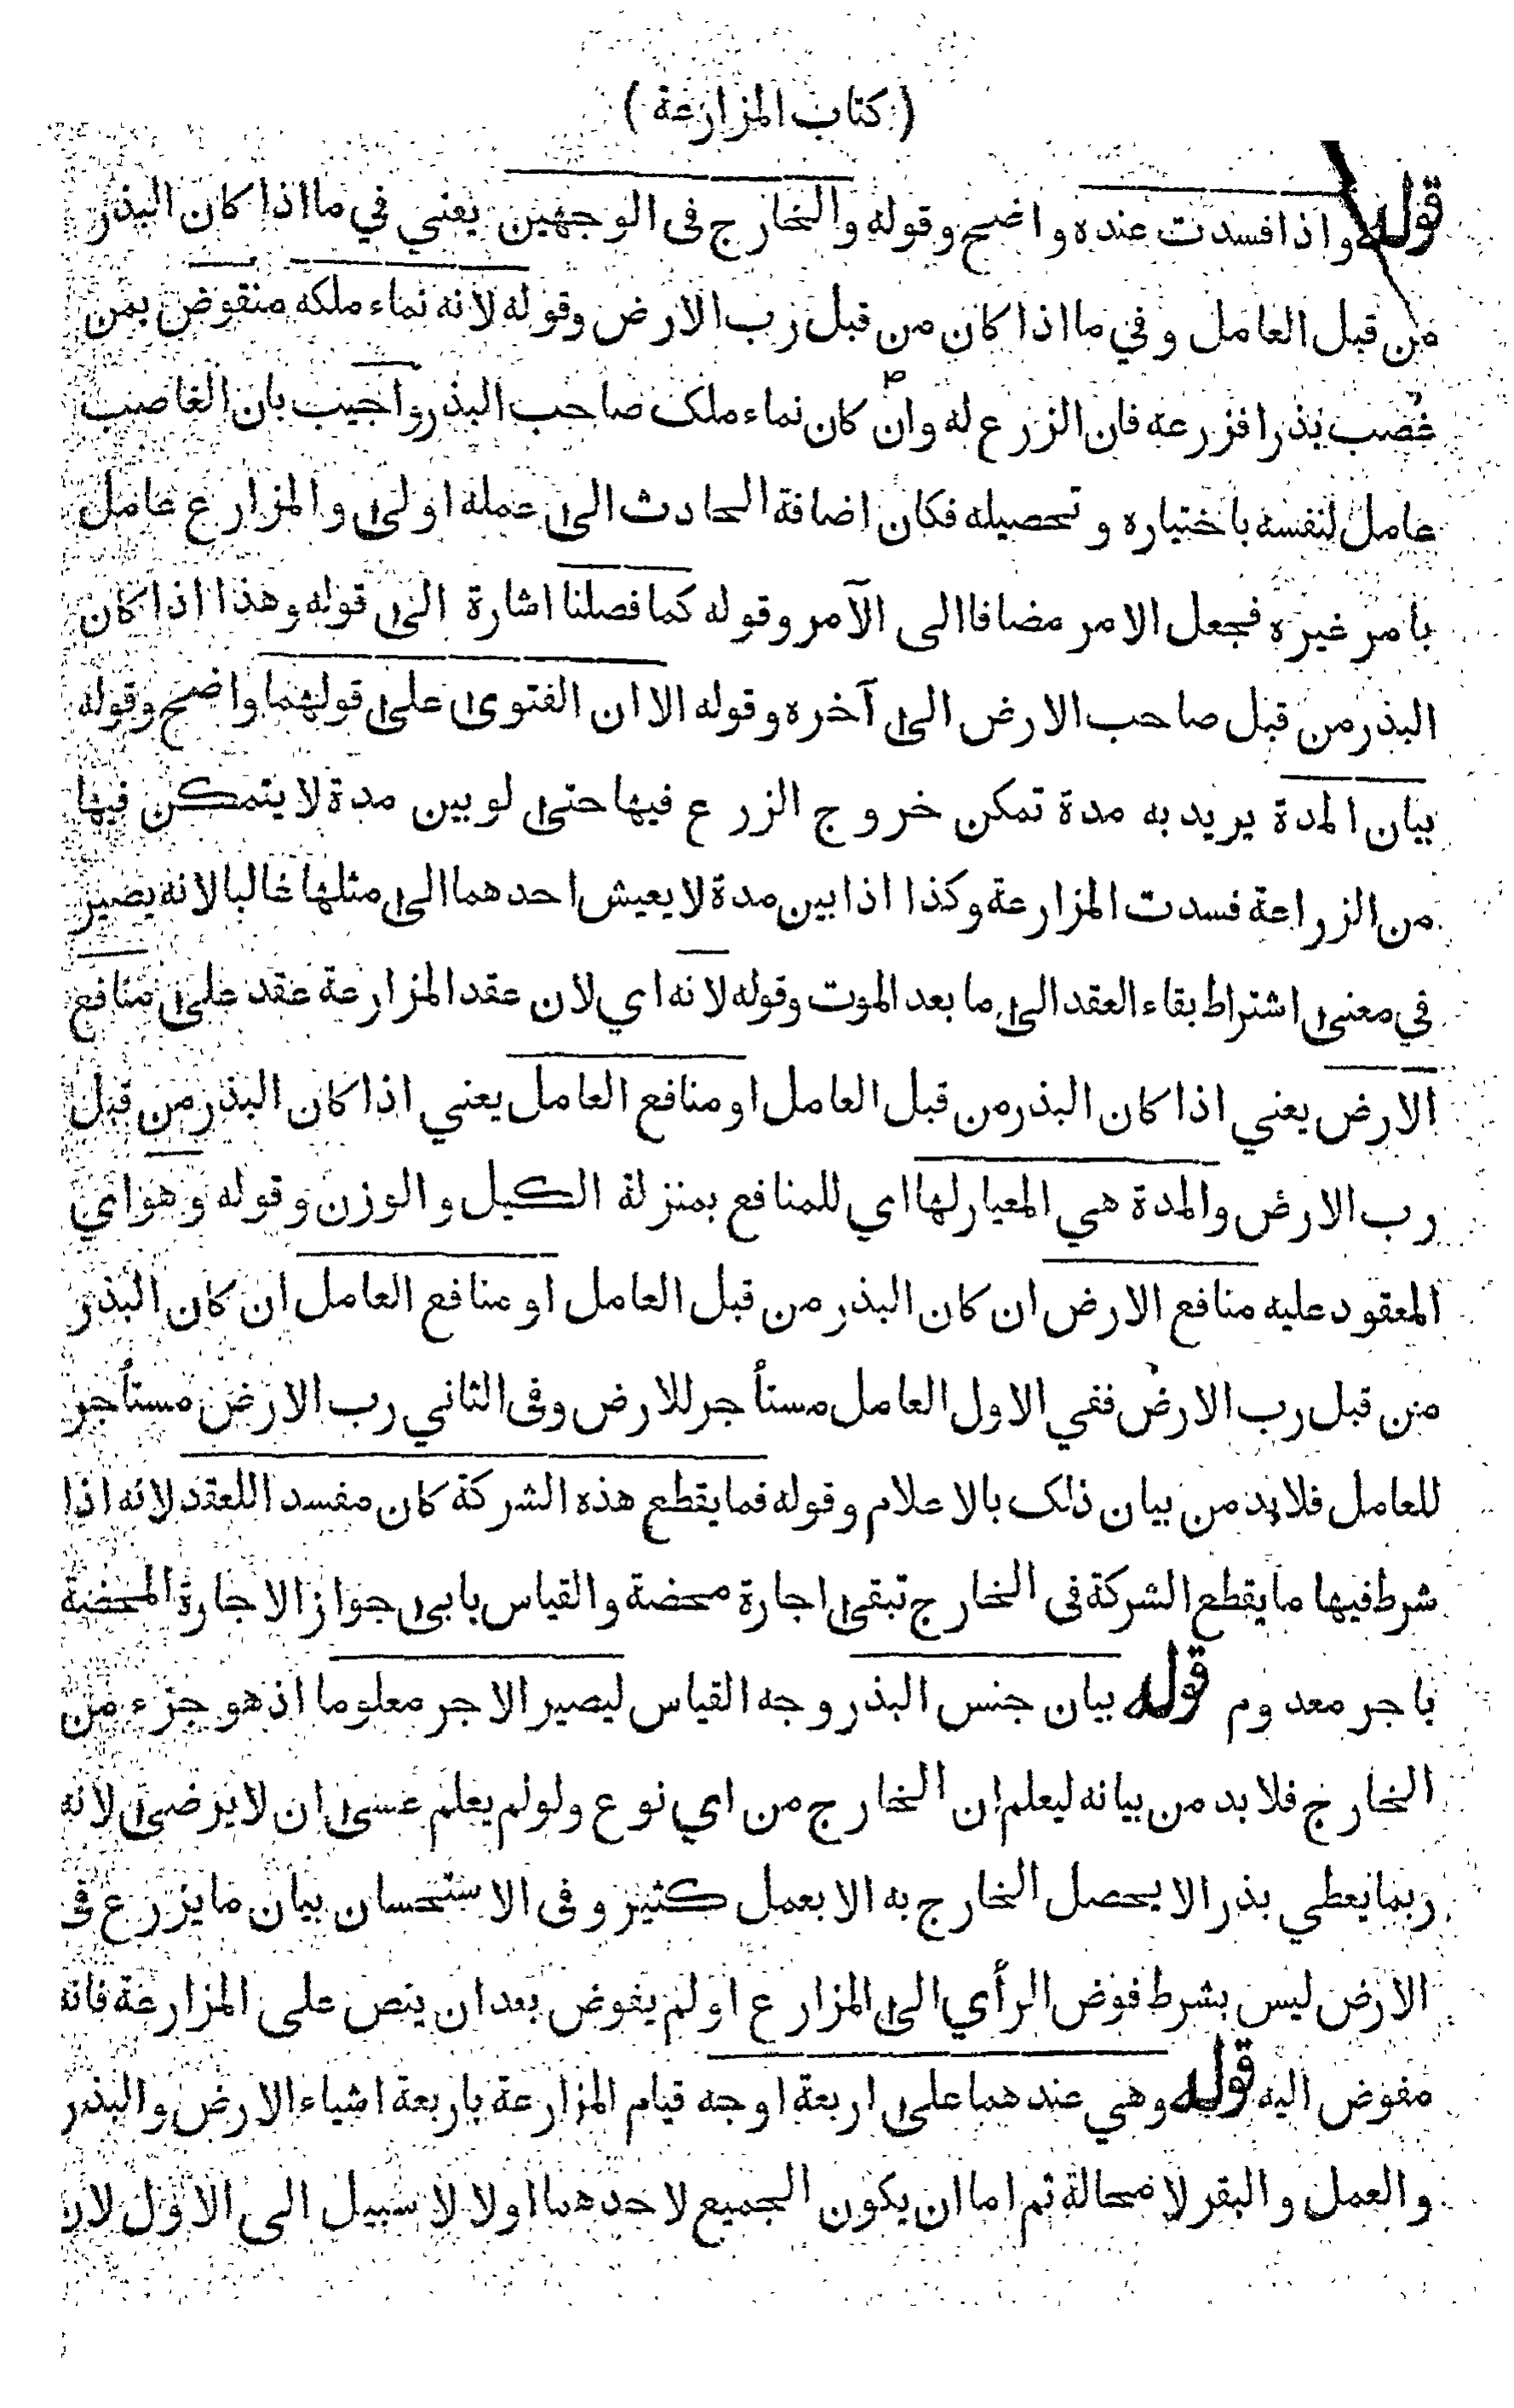 ( كتاب المزارعة )
قوله واذا فسدت عنده واضح وقوله والخارج فى الوجهين يعني في ما اذا كان البذر
من قبل العامل وفي ما اذا كان من قبل رب الارض وقوله لانه نماء ملكه منقوض بمن
غصب بذرا فزرعه فان الزرع له وان كان نماء ملك صاحب البذر واجيب بان الغاصب
عامل لنفسه باختياره وتحصيله فكان اضافة الحادث الى عمله اولى والمزارع عامل
بامر غيره فجعل الامر مضافا الى الآمر وقوله كما فصلنا اشارة الى قوله وهذا اذا كان
البذر من قبل صاحب الارض الى آخره وقوله الا ان الفتوى على قولهما واضح وقوله
بيان المدة يريد به مدة تمكن خروج الزرع فيها حتى لو بين مدة لا يتمكن فيها
من الزراعة فسدت المزارعة وكذا اذا بين مدة لا يعيش احدهما الى مثلها غالبا لانه يصير
في معنى اشتراط بقاء العقد الى ما بعد الموت وقوله لانه اي لان عقد المزارعة عقد على منافع
الارض يعني اذا كان البذر من قبل العامل او منافع العامل يعني اذا كان البذر من قبل
رب الارض والمدة هي المعيار لها اي للمنافع بمنزلة الكيل والوزن وقوله وهو اي
المعقود عليه منافع الارض ان كان البذر من قبل العامل او منافع العامل ان كان البذر
من قبل رب الارض ففي الاول العامل مستأجر للارض وفى الثاني رب الارض مستأجر
للعامل فلا بد من بيان ذلك بالاعلام وقوله فما يقطع هذه الشركة كان مفسدا للعقد لانه اذا
شرط فيها ما يقطع الشركة فى الخارج تبقى اجارة محضة والقياس يابى جواز الاجارة المحضة
باجر معدوم قوله بيان جنس البذر وجه القياس ليصير الاجر معلوما اذ هو جزء من
الخارج فلا بد من بيانه ليعلم ان الخارج من اي نوع ولو لم يعلم عسى ان لا يرضى لانه
ربما يعطي بذرا لا يحصل الخارج به الا بعمل كثير وفى الاستحسان بيان ما يزرع فى
الارض ليس بشرط فوض الرأي الى المزارع او لم يفوض بعد ان ينص على المزارعة فانه
مفوض اليه قوله وهي عندهما على اربعة اوجه قيام المزارعة باربعة اشياء الارض والبذر
والعمل والبقر لا محالة ثم اما ان يكون الجميع لاحدهما اولا لا سبيل الى الاول لان